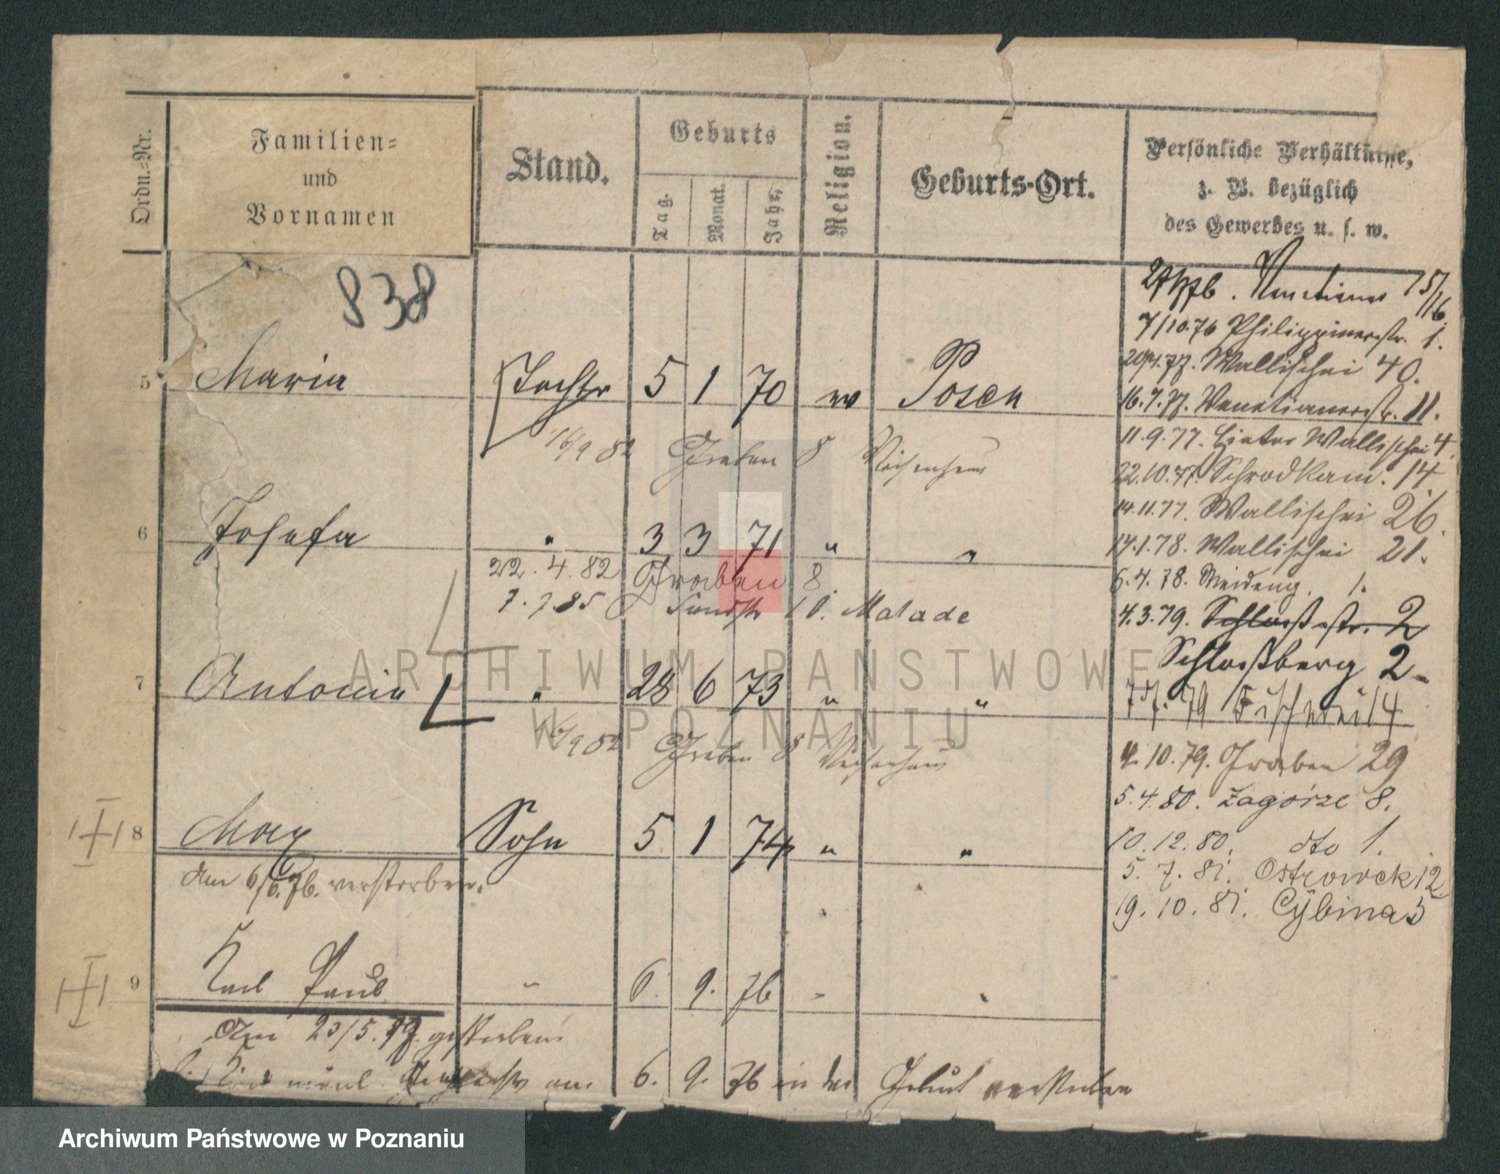 Ordn.-Nr.
Familien-
und
Vornamen
Stand.
Geburts
Tag.
Monat.
Jahr.
Religion.
Geburts-Ort.
Persönliche Verhältnisse,
z. B. bezüglich
des Gewerbes u. s. w.
838
7/10.76 Philippinerstr. 1.
Wallischei 40.
16.7.77. Venetianerstr. 11.
11.9.77. Hinter Wallischei 4.
22.10.77. Schrodkam. 14
14.11.77. Wallischei 26.
14.1.78. Wallischei 21.
6.4.78. 1.
4.3.79. Schloßstr. 2
Schloßberg 2.
7.7.79 Fischerei 14
4.10.79. Graben 29
5.4.80. Zagórze 8.
10.12.80. dto 1.
5.7.81. Ostrowek 12
19.10.81. Cybina 5
5 Maria Tochter 5 1 70 Posen
16/9 82 Graben 8 Waisenhaus
6 Josefa " 3 3 71 " "
22.4.82 Graben 8.
7.7.85 10. Malade
7 Antonia " 28 6 73 " "
9 82 Graben 8 Waisenhaus
8 Max Sohn 5 1 74 " "
Am 6/6.76. verstorben.
9 Karl Paul " 6. 9. 76 " "
Am 23/5.77. gestorben.
am 6. 9. 76 in der Geburt verstorben
ARCHIWUM PAŃSTWOWE
W POZNANIU
Archiwum Państwowe w Poznaniu